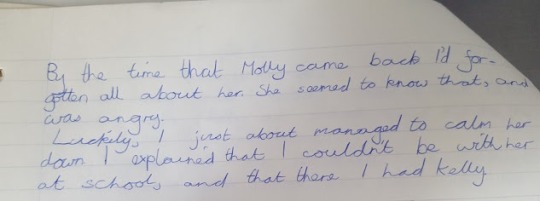 By the time that Molly came back I'd for-
gotten all about her. She seemed to know that, and
was angry.
Luckily, I just about managed to calm her
down I explained that I couldn't be with her
at school, and that there I had Kelly